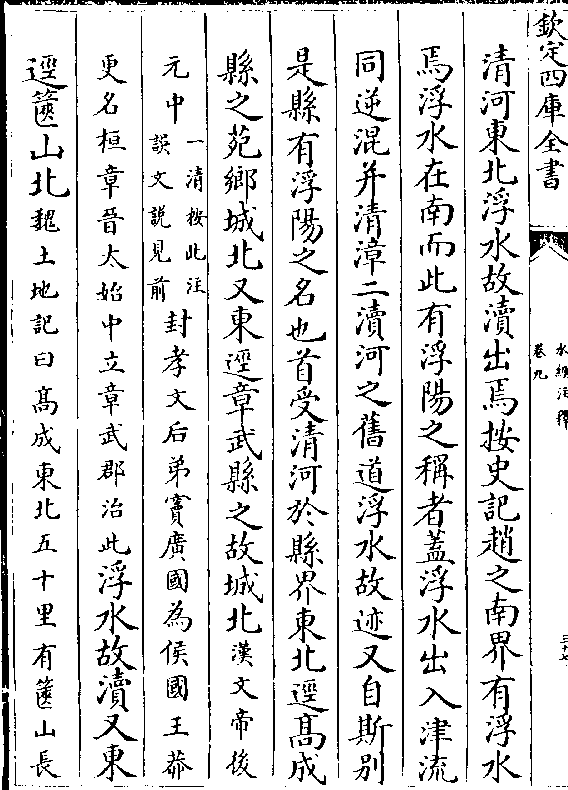 欽定四庫全書
水經注釋
卷九
清河東北浮水故瀆出焉按史記趙之南界有浮水
焉浮水在南而此有浮陽之稱者蓋浮水出入津流
同逆混并清漳二瀆河之舊道浮水故迹又自斯別
是縣有浮陽之名也首受清河於縣界東北逕髙成
縣之苑鄉城北又東逕章武縣之故城北漢文帝後
元中一清按此注誤文說見前封孝文后弟竇廣國為侯國王莽
更名桓章晉太始中立章武郡治此浮水故瀆又東
逕篋山北魏土地記曰髙成東北五十里有篋山長